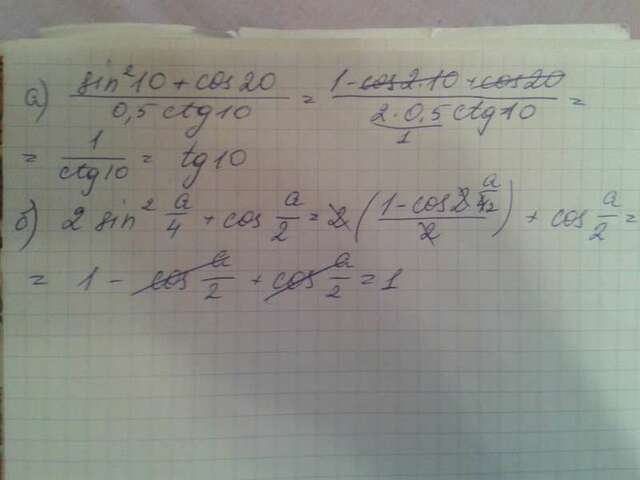 а) (sin²10 + cos20)/(0,5 ctg10) = (1 - cos2·10 + cos20)/(2·0,5 ctg10) =
1
= 1/ctg10 = tg10
б) 2 sin² a/4 + cos a/2 = 2((1 - cos2 a/42)/2) + cos a/2 =
= 1 - cos a/2 + cos a/2 = 1